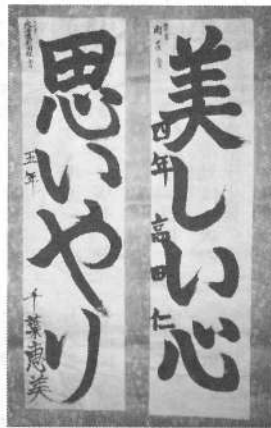 美しい心
四年 高田 仁
思いやり
五年 千葉恵美